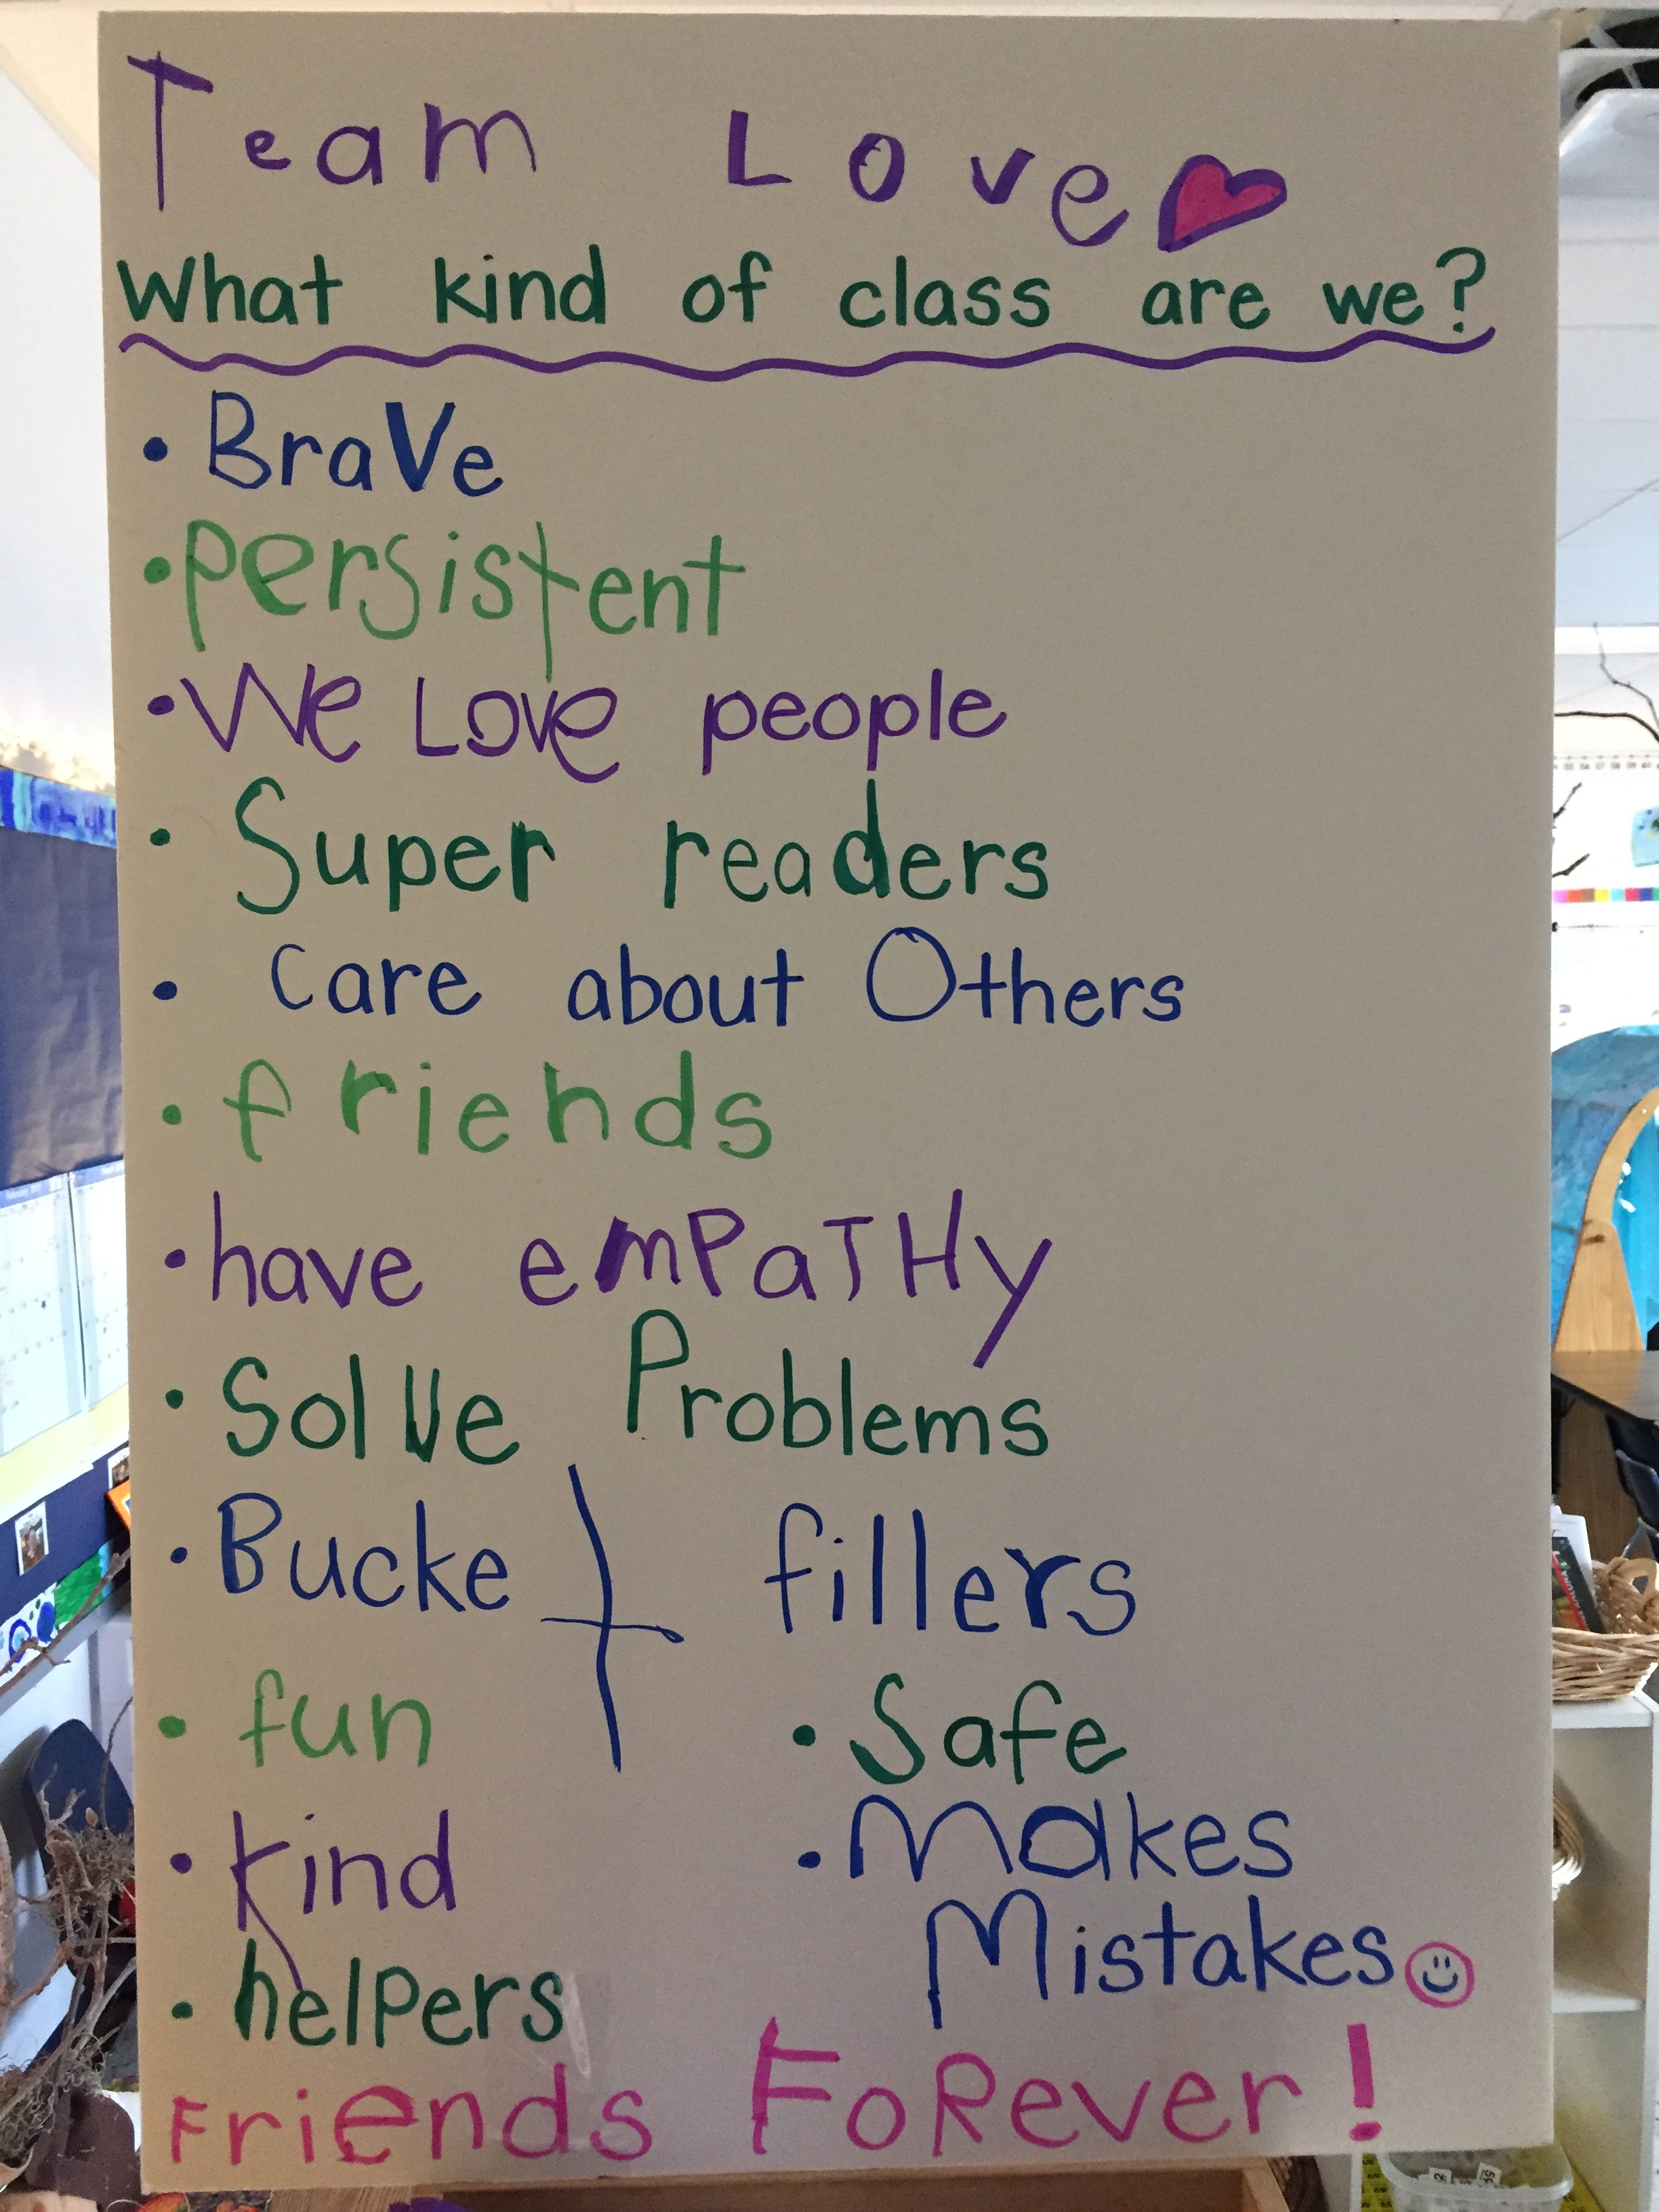 Team Love
What kind of class are we?
• BraVe
• persistent
• We Love people
• Super readers
• Care about Others
• friends
• have emPaTHy
• Solve Problems
• Bucket fillers
• fun
• kind
• helPers
• Safe
• Makes
Mistakes
Friends FoRever!